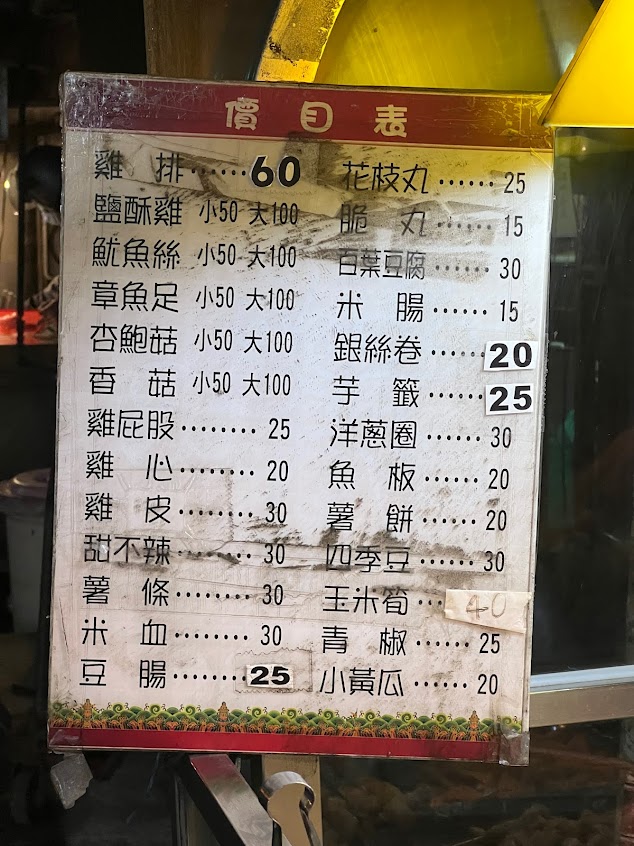 價目表
雞排⋯⋯60
鹽酥雞 小50 大100
魷魚絲 小50 大100
章魚足 小50 大100
杏鮑菇 小50 大100
香菇 小50 大100
雞屁股⋯⋯⋯25
雞心⋯⋯⋯20
雞皮⋯⋯⋯30
甜不辣⋯⋯⋯30
薯條⋯⋯⋯30
米血⋯⋯⋯30
豆腸⋯⋯⋯25
花枝丸⋯⋯25
脆丸⋯⋯15
百葉豆腐⋯⋯30
米腸⋯⋯15
銀絲卷⋯⋯20
芋籤⋯⋯25
洋蔥圈⋯⋯30
魚板⋯⋯20
薯餅⋯⋯20
四季豆⋯⋯30
玉米筍⋯40
青椒⋯⋯25
小黃瓜⋯⋯20